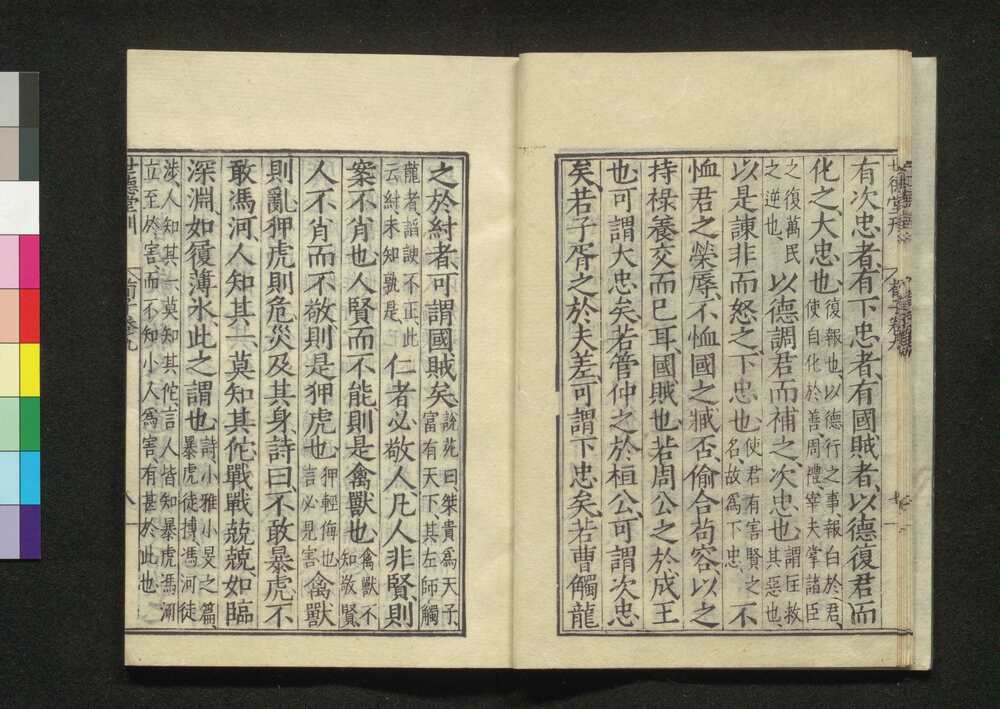 有次忠者有下忠者有國賊者以德復君而
化之大忠也復報也以德行之事報白於君
使自化於善周禮宰夫掌諸臣
之復萬民
之逆也以德調君而補之次忠也謂匡救
其惡也
以是諫非而怒之下忠也使君有害賢之
名故爲下忠不
恤君之榮辱不恤國之臧否偷合苟容以之
持祿養交而已耳國賊也若周公之於成王
也可謂大忠矣若管仲之於桓公可謂次忠
矣若子胥之於夫差可謂下忠矣若曹觸龍
之於紂者可謂國賊矣說苑曰桀貴爲天子
富有天下其左師觸
龍者謟諛不正此
云紂未知孰是仁者必敬人凡人非賢則
案不肖也人賢而不能則是禽獸也禽獸不
知敬賢
人不肖而不敬則是狎虎也狎輕侮也
言必見害禽獸
則亂狎虎則危災及其身詩曰不敢暴虎不
敢馮河人知其一莫知其佗戰戰兢兢如臨
深淵如履薄冰此之謂也詩小雅小旻之篇
暴虎徒搏馮河徒
涉人知其一莫知其佗言人皆知暴虎馮河
立至於害而不知小人爲害有甚於此也
世德堂刊
八